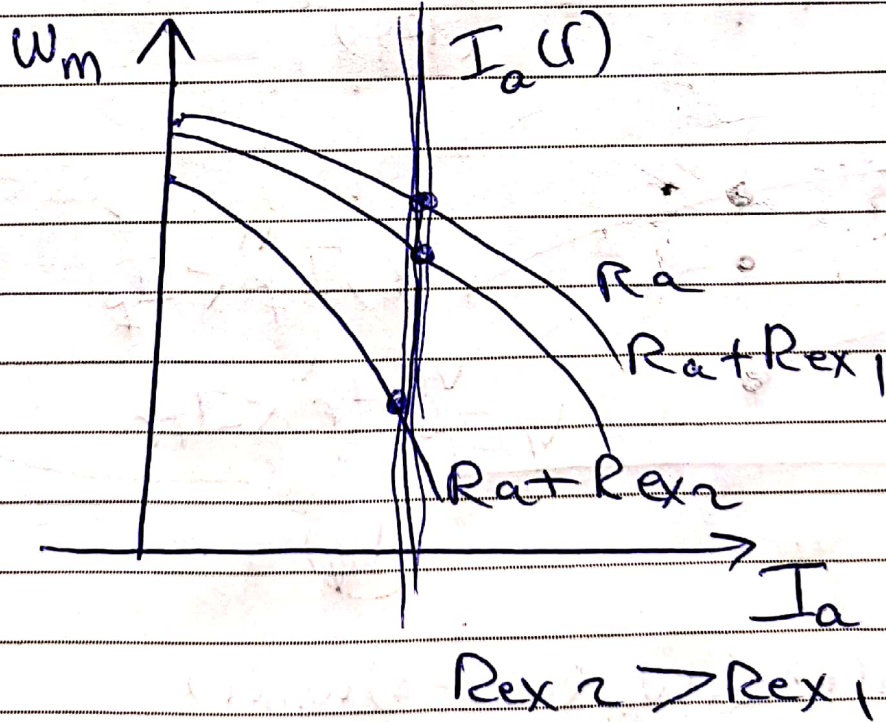 ωm
Ia(r)
Ra
Ra+Rex1
Ra+Rex2
Ia
Rex2 >Rex1